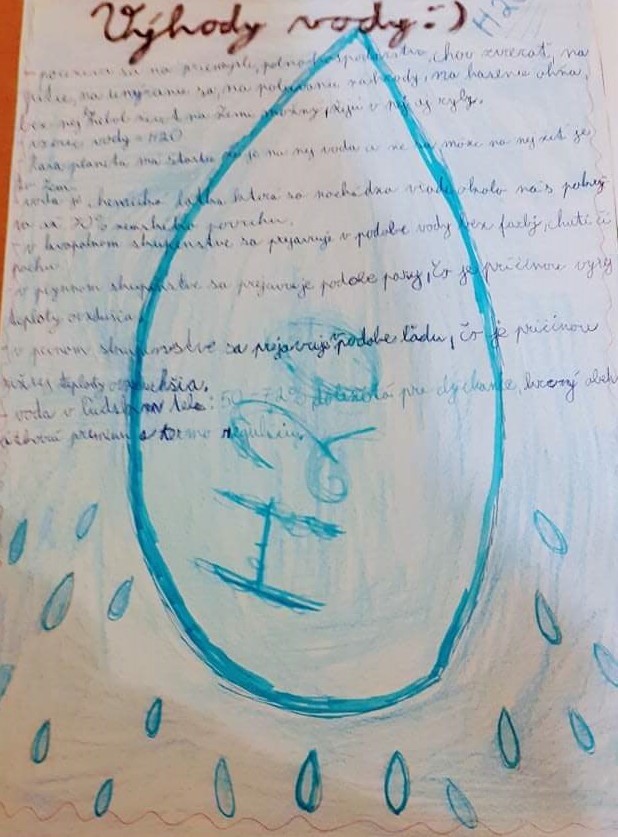 Výhody vody :)
H2O
- používa sa na priemysle, poľnohospodárstvo, chov zvierat, na
pitie, na umývanie sa, na polievanie záhrady, na hasenie ohňa,
bez nej život na Zemi možný, žijú v nej aj ryby.
vzorec vody = H2O
planéta má je na nej voda a sa môže na nej žiť je
to Zem.
- voda je chemická látka ktorá sa nachádza všade okolo nás
70% zemského povrchu.
- v kvapalnom skupenstve sa prejavuje v podobe vody bez farby, chuti či
pachu
- v plynnom skupenstve sa prejavuje podobe pary, čo je príčinou
teploty ovzdušia
- v pevnom skupenstve sa prejavuje v podobe ľadu, čo je príčinou
nižšej teploty ovzdušia.
- voda v ľudskom tele: 50 - 72% dôležitá pre dýchanie, krvný obeh
a termo reguláciu.
H2O